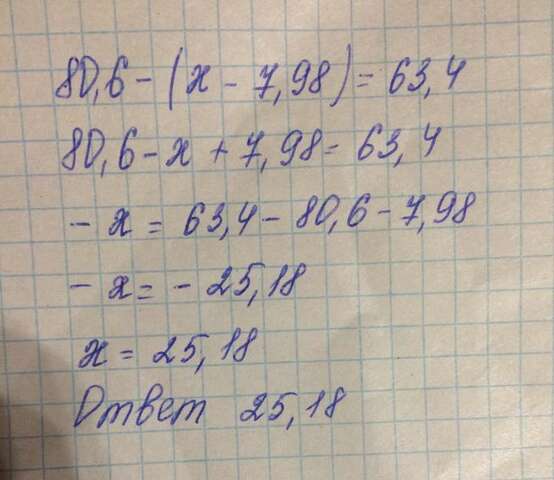 80,6 - (x - 7,98) = 63,4
80,6 - x + 7,98 = 63,4
- x = 63,4 - 80,6 - 7,98
- x = - 25,18
x = 25,18
Ответ 25,18